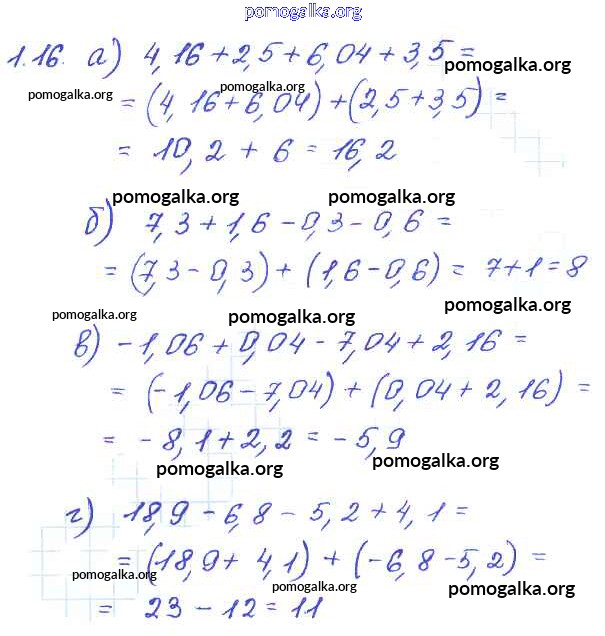 pomogalka.org
1.16. а) 4,16+2,5+6,04+3,5=
pomogalka.org
pomogalka.org pomogalka.org
= (4,16+6,04)+(2,5+3,5) =
= 10,2 + 6 = 16,2
pomogalka.org pomogalka.org
б) 7,3+1,6-0,3-0,6 =
= (7,3-0,3)+(1,6-0,6) = 7+1=8
pomogalka.org pomogalka.org pomogalka.org
в) -1,06+0,04-7,04+2,16 =
= (-1,06-7,04)+(0,04+2,16) =
= -8,1+2,2 = -5,9
pomogalka.org pomogalka.org
г) 18,9-6,8-5,2+4,1=
= (18,9+4,1)+(-6,8-5,2) =
pomogalka.org pomogalka.org pomogalka.org
= 23-12=11